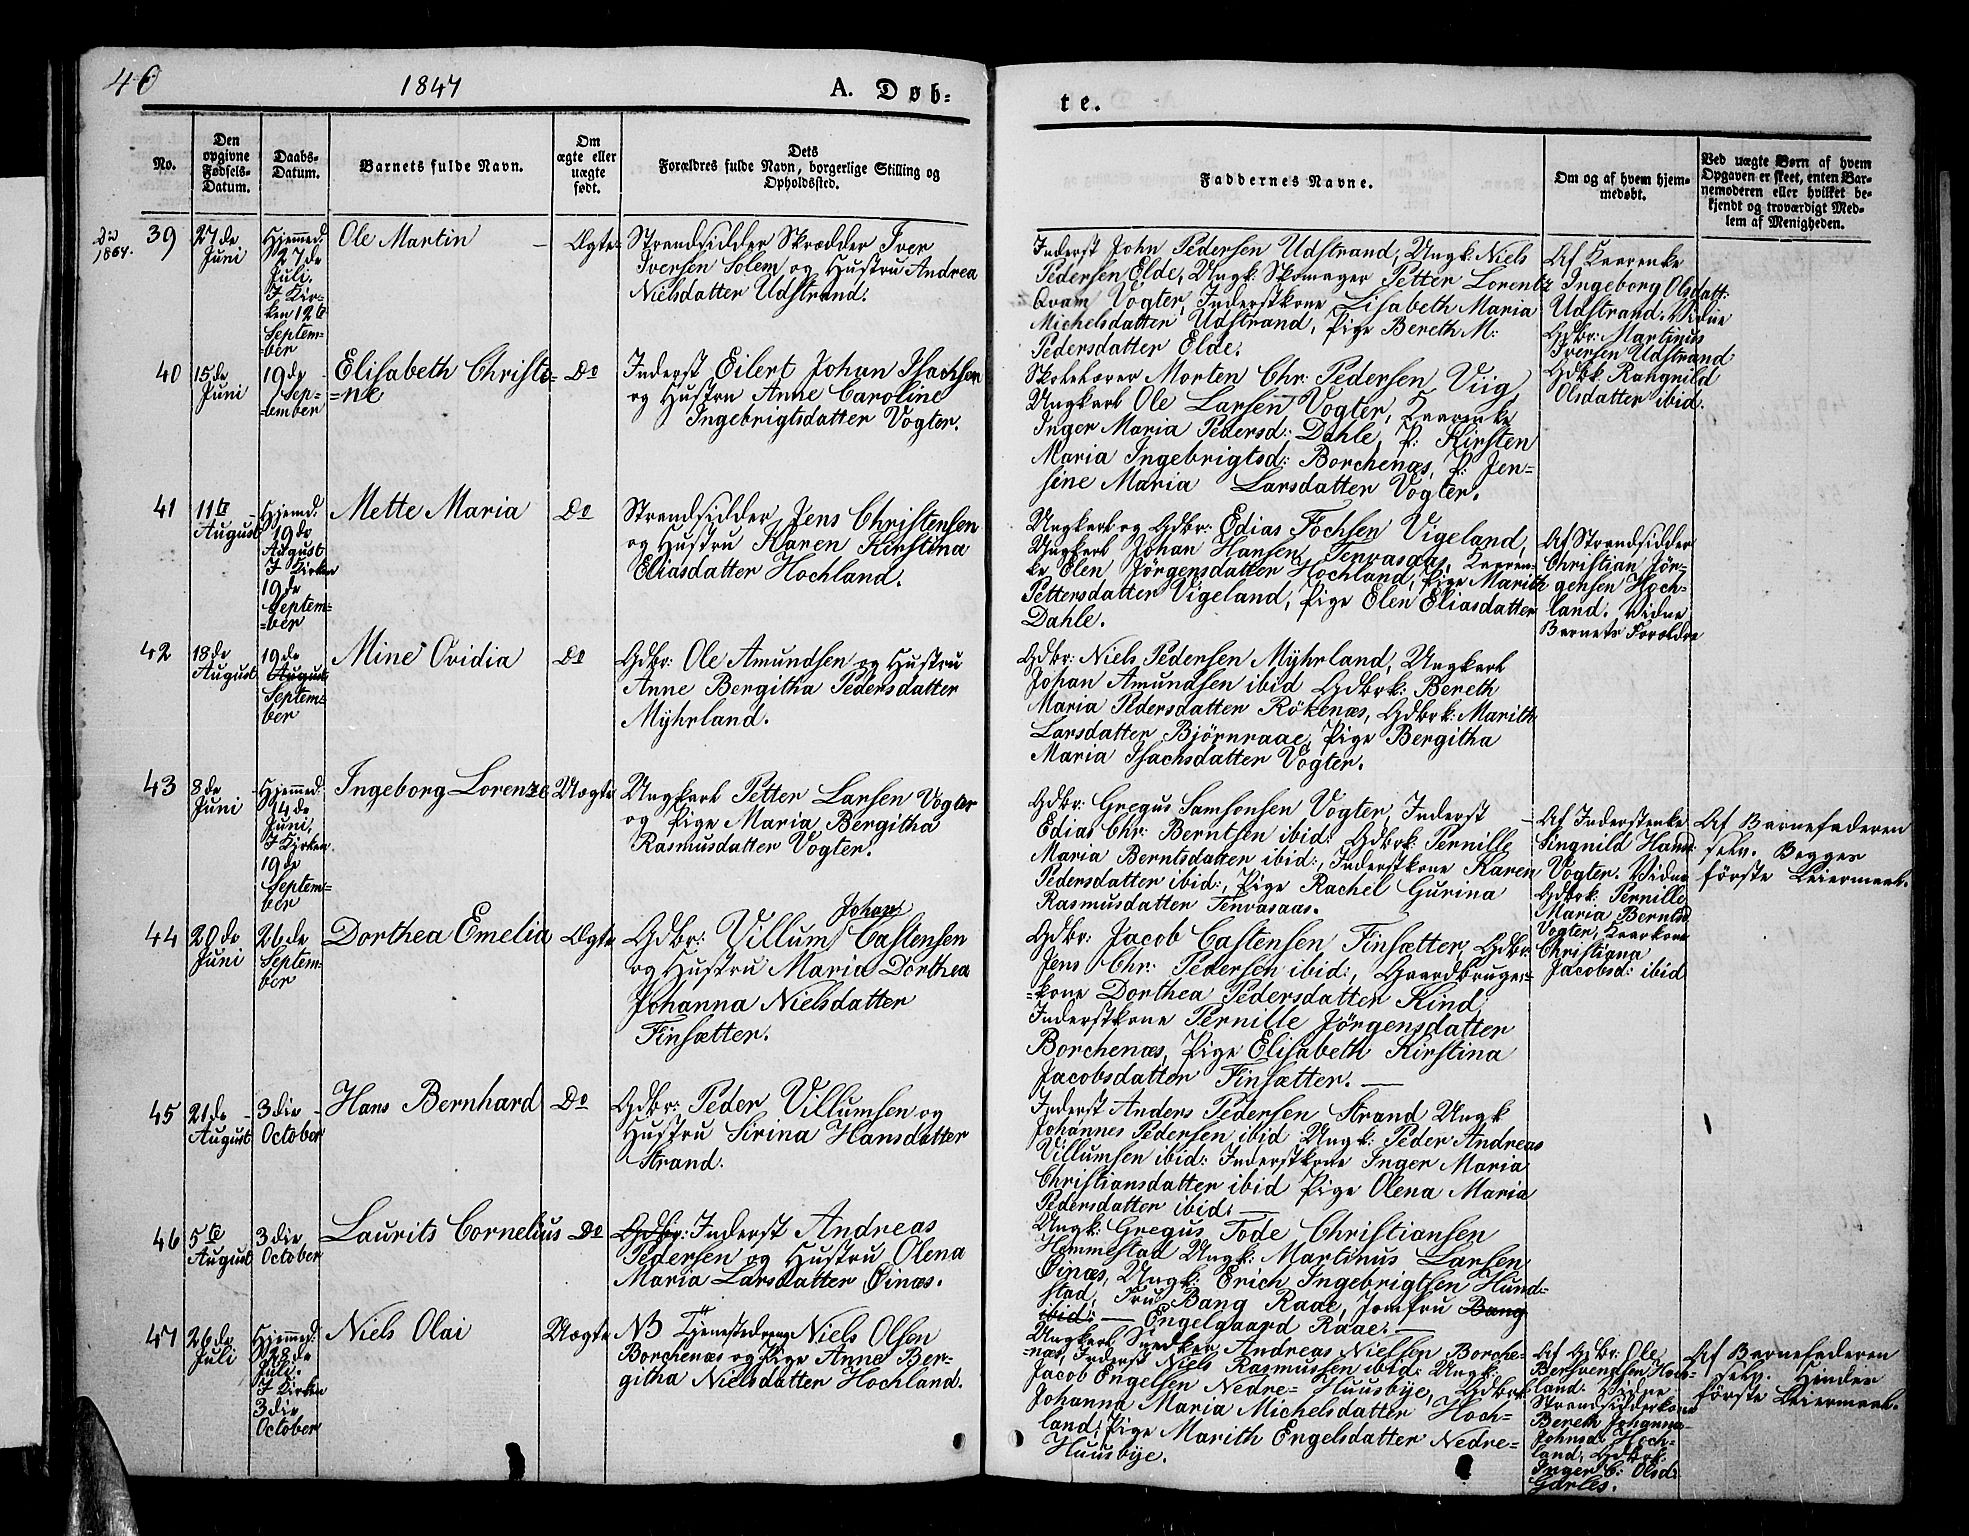 40
1847
A. Døb=
te.
No.
Den
opgivne
Fødsels-
Datum.
Daabs-
Datum.
Barnets fulde Navn.
Om
ægte eller
uægte
født.
Dets
Forældres fulde Navn, borgerlige Stilling og
Opholdssted.
Faddernes Navne.
Om og af hvem hjem-
medøbt.
Ved uægte Børn af hvem
Opgaven er skeet, enten Bar-
nemoderen eller hvilket be-
kjendt og troværdigt Med-
lem af Menigheden.
39
27de
Juni
Hjemmed.
27de
Juli.
I Kir-
ken 12te
Septem-
=ber
Ole Martin
Ægte
Strandsidder Skrædder Iver
Iversen Solem og Hustru Andrea
Nielsdatter Udstrand.
Inderst John Pedersen Udstrand, Ungk: Niels
Pedersen Elde, Ungk: Skomager Petter Lorentz
Qvam Vogter, Inderstkone Lisabeth Maria
Michelsdatter Udstrand, Pige Bereth M:
Pedersdatter Elde.
Af Kaarenke
Ingeborg Olsdatt:
Udstrand. Vidne
Gdbr: Martinus
Iversen Udstrand
Gdbk: Rangnild
Olsdatter ibid.
40
15de
Juni
19de
Sep-
tember
Elisabeth Christi=
=ne
Do
Inderst Eilert Johan Isachsen
og Hustru Anne Caroline
Ingebrigtsdatter Vogter.
Skolelærer Morten Chr: Pedersen Viig,
Ungkarl Ole Larsen Vogter, Kaarenke
Inger Maria Pedersd: Dahle, P: Kirsten
Maria Ingebrigtsd: Borchenæs, P: Jen=
sine Maria Larsdatter Vogter.
41
11te
August
Hjemd.
19de
August
I Kirken
19de
Septem-
=ber
Mette Maria
Do
Strandsidder Jens Christensen
og Hustru Karen Kirstina
Eliasdatter Hochland.
Ungkarl og Gdbr: Edias Fochsen Vigeland,
Ungkarl Johan Hansen Tenvasaas, Kaaren-
ke Elen Jörgensdatter Hochland, Pige Marith
Pettersdatter Vigeland, Pige Elen Eliasdatter
Dahle.
Af Strandsidder
Christian Jör-
gensen Hoch-
land. Vidne
Barnets Forældre
42
18de
August
19de
August
Septem-
ber
Mine Ovidia
Do
Gdbr: Ole Amundsen og Hustru
Anne Bergitha Pedersdatter
Myhrland.
Gdbr: Niels Pedersen Myhrland, Ungkarl
Johan Amundsen ibid Gdbrk: Bereth
Maria Pedersdatter Rökenæs, Gdbrk: Marith
Larsdatter Björnraae, Pige Bergitha
Maria Isachsdatter Vogter.
43
8de
Juni
Hjemmed.
24de
Juni,
I Kirken
19de
Septem-
ber
Ingeborg Lorenze
Uægte
Ungkarl Petter Larsen Vogter
og Pige Maria Bergitha
Rasmusdatter Vogter.
Gdbr: Gregus Samsonsen Vogter, Inderst
Edias Chr: Berntsen ibid: Gdbrk: Pernille
Maria Berntsdatter ibid:, Inderstkone Karen
Pedersdatter ibid:, Pige Rachel Gurina
Rasmusdatter Tenvasaas.
Af Inderstenke
Singnild Hansd:
Vogter. Vidne
Gdbrk: Pernille
Maria Berntsd:
Vogter, Kaarkone
Christiana
Jacobsd: ibid
Af Barnefaderen
selv. Begges
förste Leiermaal.
44
20de
Juni
26de
Septem-
ber
Dorthea Emelia
Ægte
Johan
Gdbr: Villum Castensen
og Hustru Maria Dorthea
Johanna Nielsdatter
Finsætter.
Gdbr: Jacob Castensen Finsætter, Gdbr:
Jens Chr: Pedersen ibid:, Gaardbruger=
=kone Dorthea Pedersdatter Kind,
Inderstkone Pernille Jörgensdatter
Borchenæs, Pige Elisabeth Kirstina
Jacobsdatter Finsætter.
45
21de
August
3die
October
Hans Bernhard
Do
Gdbr: Peder Villumsen og
Hustru Sirina Hansdatter
Strand.
Inderst Anders Pedersen Strand Ungk
Johannes Pedersen ibid Ungk: Peder Andreas
Villumsen ibid: Inderstkone Inger Maria
Christiansdatter ibid Pige Olena Maria
Pedersdatter ibid:
46
5te
August
3die
October
Laurits Cornelius
Do
Gdbr: Inderst Andreas
Pedersen og Hustru Olena
Maria Larsdatter Öinæs.
Ungk: Gregus Tode Christiansen
Hemmestad Ungk: Martinus Larsen
Öinæs, Ungk: Erich Ingebrigtsen Hund=
stad, Fru Bang Raae, Jomfru Bang
ibid: Engelgaard Raae.
47
26de
Juli
Hjemmed.
28de
Juli.
I Kirken
3die
October
Niels Olai
Uægte
NB Tjenestedreng Niels Olsen
Borchenæs og Pige Anne Ber-
githa Nielsdatter Hochland.
Ungkarl Snedker Andreas Nielsen Borche-
=næs, Inderst Niels Rasmussen ibid: Ungk:
Jacob Engelsen Nedre= Huusbye, Gdbrk:
Johanna Maria Michelsdatter Hoch-
land, Pige Marith Engelsdatter Nedre=
Huusbye.
Af Gdbr: Ole
Hoch-
land. Vidne
Strandsidderkone
Bereth Johanna
Johnsd: Hoch-
land, Gdbrk:
Inger C: Olsd:
Af Barnefaderen
selv. Hendes
förste Leiermaal.